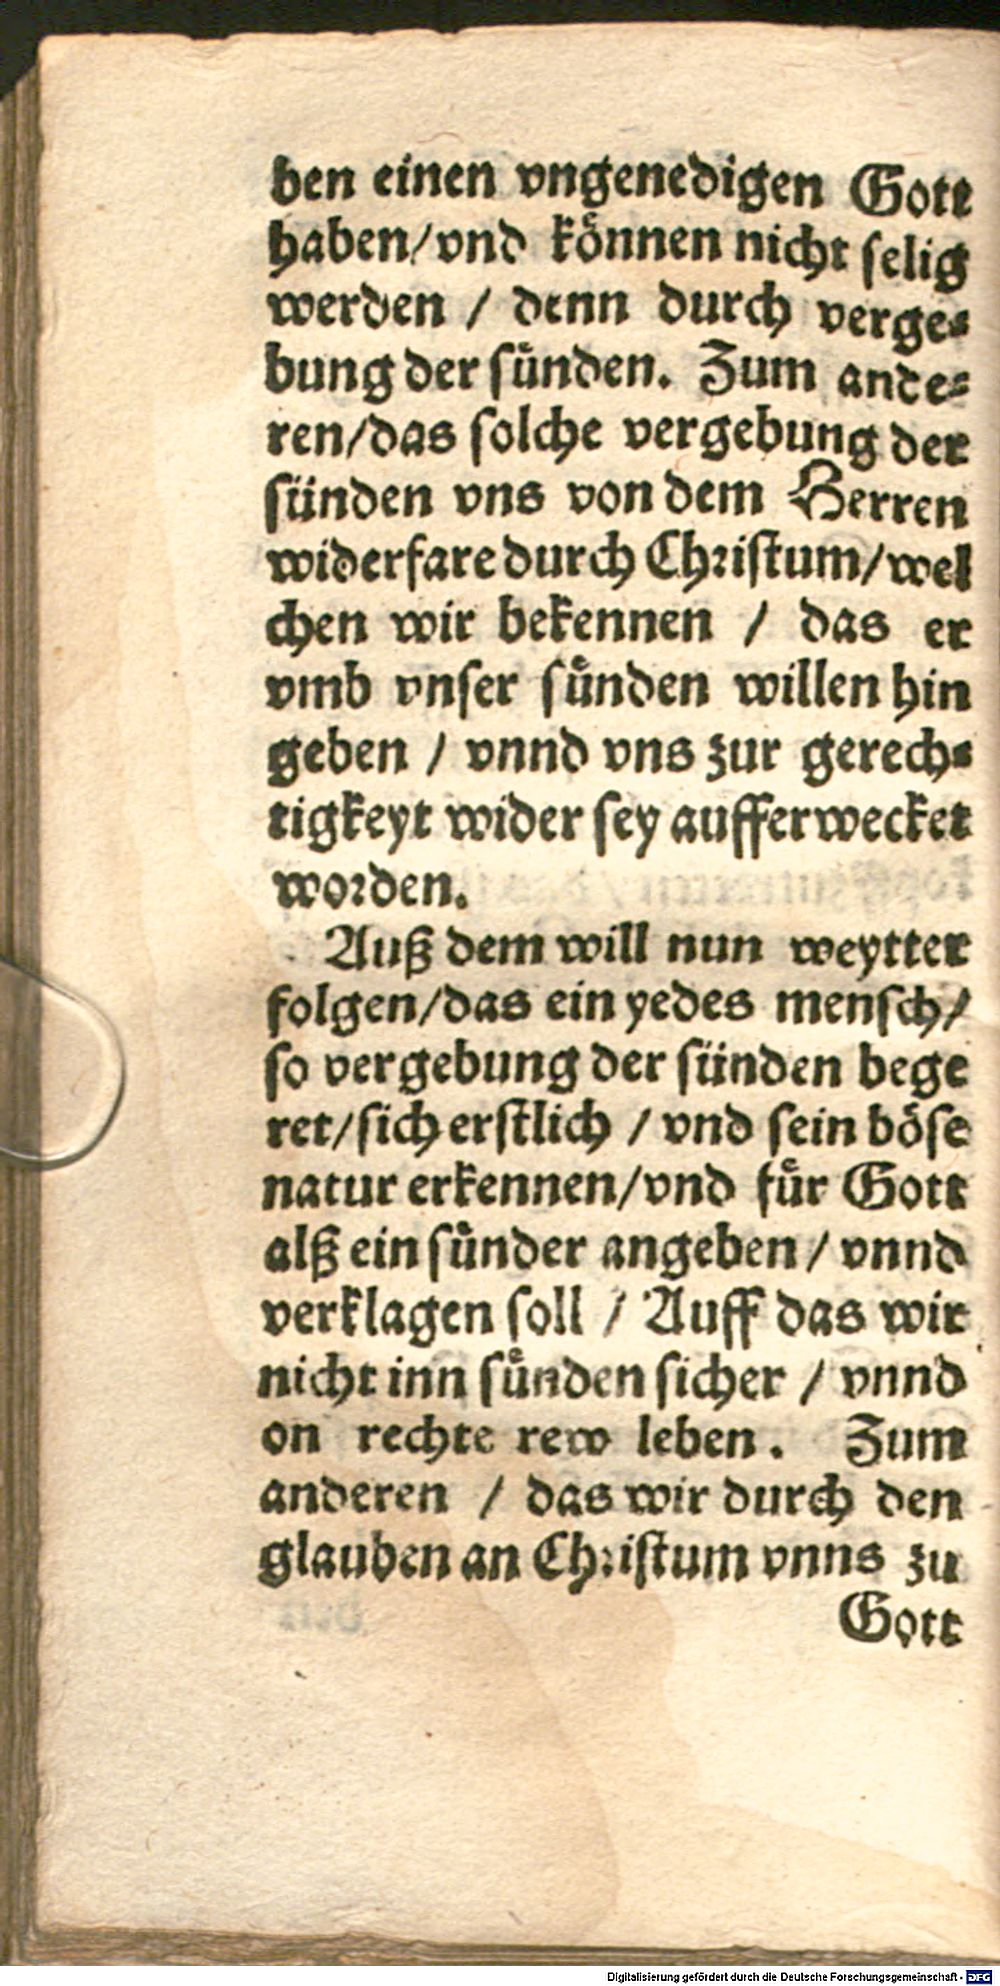 ben einen vngenedigen Gott
haben/vnd koͤnnen nicht ſelig
werden / denn durch verge⸗
bung der ſuͤnden. Zum ande⸗
ren/das ſolche vergebung der
ſünden vns von dem Herren
widerfare durch Chꝛiſtum/wel
chen wir bekennen / das er
vmb vnſer ſuͤnden willen hin
geben / vnnd vns zur gerech⸗
tigkeyt wider ſey aufferwecket
woꝛden.
Auß dem will nun weytter
folgen/das ein yedes menſch/
ſo vergebung der ſünden bege
ret/ſich erſtlich / vnd ſein boͤſe
natur erkennen/vnd fuͤr Gott
alß ein ſuͤnder angeben / vnnd
verklagen ſoll / Auff das wir
nicht inn ſuͤnden ſicher / vnnd
on rechte rew leben. Zum
anderen / das wir durch den
glauben an Chꝛiſtum vnns zu
Gott
Digitalisierung gefördert durch die Deutsche Forschungsgemeinschaft - DFG